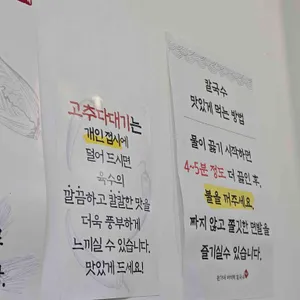 고추다대기는
개인 접시에
덜어 드시면
육수의
깔끔하고 칼칼한 맛을
더욱 풍부하게
느끼실 수 있습니다.
맛있게 드세요!
칼국수
맛있게 먹는 방법
물이 끓기 시작하면
4~5분 정도 더 끓인 후,
불을 꺼주세요.
퍼지 않고 쫄깃한 면발을
즐기실 수 있습니다.